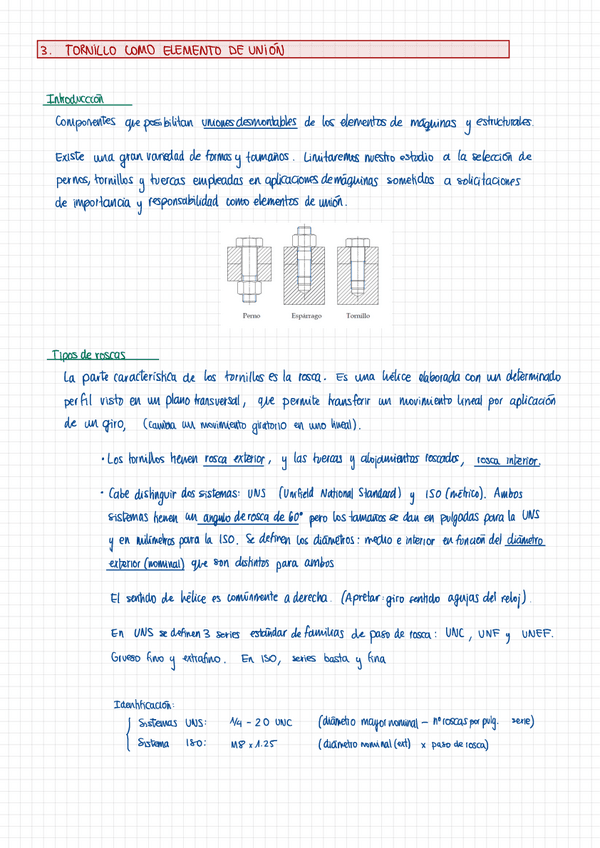 3. TORNILLO COMO ELEMENTO DE UNIÓN
Introducción
Componentes que posibilitan uniones desmontables de los elementos de máquinas y estructurales.
Existe una gran variedad de formas y tamaños. Limitaremos nuestro estudio a la selección de
pernos, tornillos y tuercas empleadas en aplicaciones de máquinas sometidos a solicitaciones
de importancia y responsabilidad como elementos de unión.
Perno Espárrago Tornillo
Tipos de roscas
La parte característica de los tornillos es la rosca. Es una hélice elaborada con un determinado
perfil visto en un plano transversal, que permite transferir un movimiento lineal por aplicación
de un giro, (cambia un movimiento giratorio en uno lineal).
· Los tornillos tienen rosca exterior, y las tuercas y alojamientos roscados, rosca interior.
· Cabe distinguir dos sistemas: UNS (Unifield National Standard) y ISO (métrico). Ambos
sistemas tienen un angulo de rosca de 60° pero los tamaños se dan en pulgadas para la UNS
y en milímetros para la ISO. Se definen los diámetros: medio e interior en función del diámetro
exterior (nominal) que son distintos para ambos
El sentido de hélice es comúnmente a derecha. (Apretar: giro sentido agujas del reloj).
En UNS se definen 3 series estándar de familias de paso de rosca: UNC, UNF y UNEF.
Grueso fino y extrafino. En ISO, series basta y fina
Identificación:
Sistemas UNS: 1/4 - 20 UNC (diámetro mayor nominal - nº roscas por pulg. serie)
Sistema ISO: M8 x 1.25 (diámetro nominal (ext) x paso de rosca)